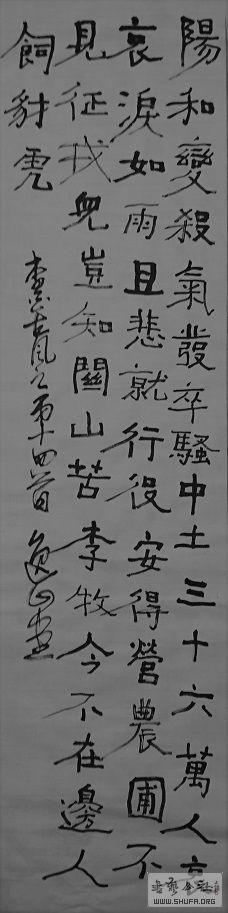 陽和變殺氣發卒騷中土三十六萬人哀
哀淚如雨且悲就行役安得營農圃不
見征戍兒豈知關山苦李牧今不在邊人
飼豺虎
李白古風之第十四首
書藝公社
WWW.SHUFA.ORG